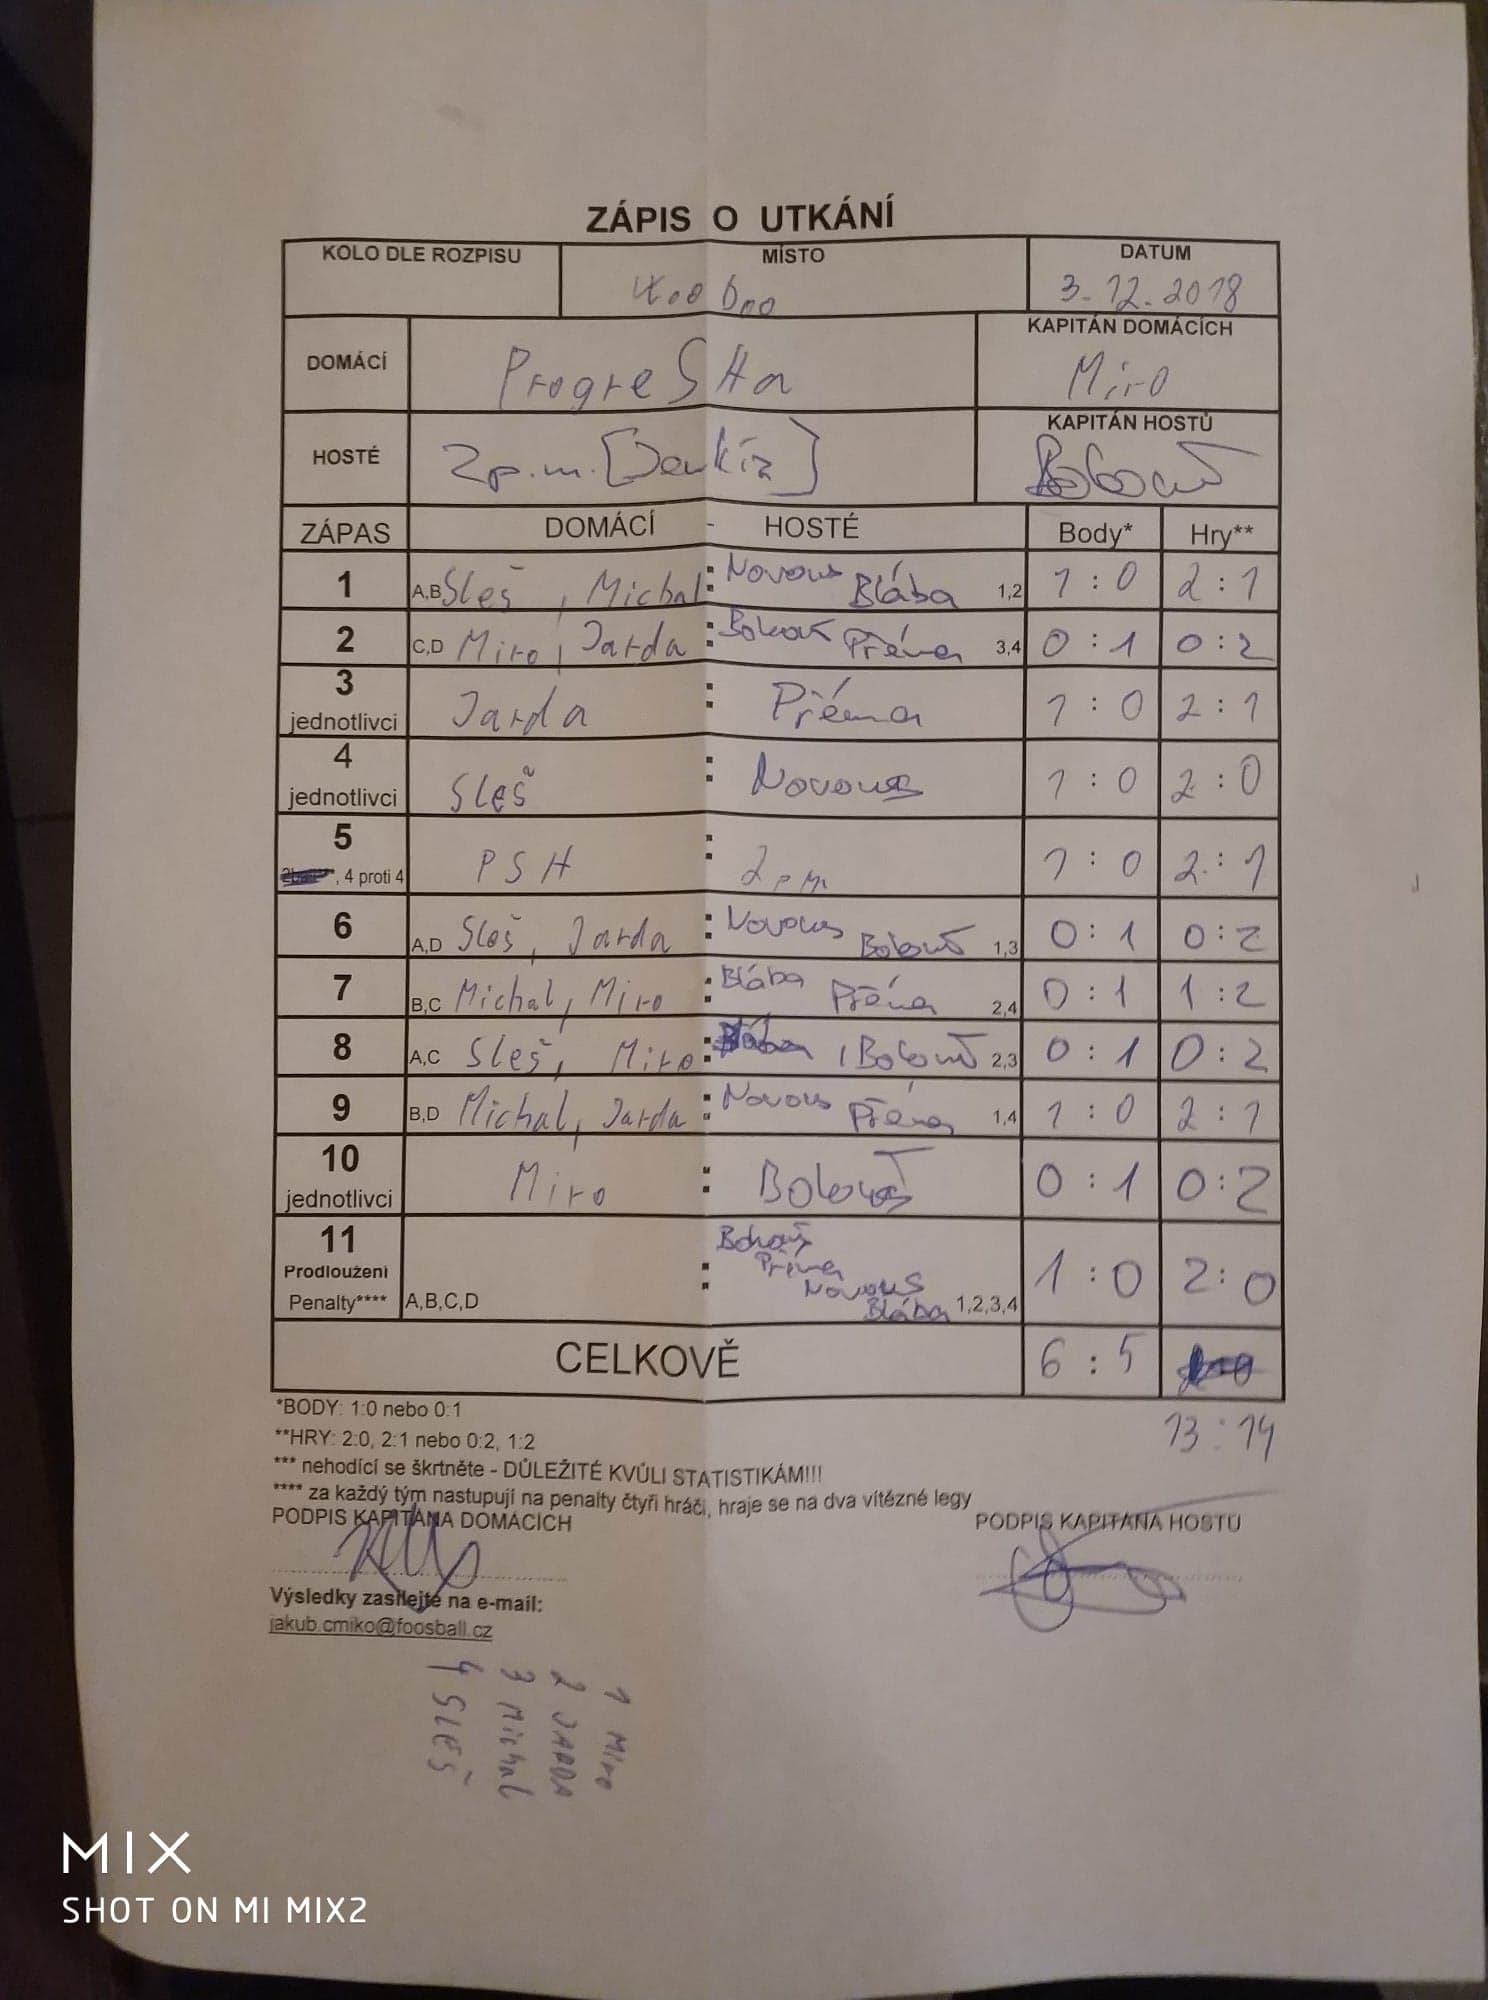 ZÁPIS O UTKÁNÍ
KOLO DLE ROZPISU MÍSTO DATUM
3.12.2018
KAPITÁN DOMÁCÍCH
DOMÁCÍ ProgreSHa Miro
KAPITÁN HOSTŮ
HOSTÉ 2p.m.
ZÁPAS DOMÁCÍ - HOSTÉ Body* Hry**
1 A,B Sleš, Michal : Novous Blába 1,2 1:0 2:1
2 C,D Miro, Jarda : Přéma 3,4 0:1 0:2
3 jednotlivci Jarda : Přéma 1:0 2:1
4 jednotlivci Sleš : Novous 1:0 2:0
5 , 4 proti 4 PSH : 2pm 1:0 2:1
6 A,D Sleš, Jarda : Novous Bokouš 1,3 0:1 0:2
7 B,C Michal, Miro : Blába Přéma 2,4 0:1 1:2
8 A,C Sleš, Miro : Blába , Bokouš 2,3 0:1 0:2
9 B,D Michal, Jarda : Novous Přéma 1,4 1:0 2:1
10 jednotlivci Miro : Bokouš 0:1 0:2
11 Prodloužení Penalty**** A,B,C,D : Bokouš Přéma Novous Blába 1,2,3,4 1:0 2:0
CELKOVĚ 6:5
13:14
*BODY: 1:0 nebo 0:1
**HRY: 2:0, 2:1 nebo 0:2, 1:2
*** nehodící se škrtněte - DŮLEŽITÉ KVŮLI STATISTIKÁM!!!
**** za každý tým nastupují na penalty čtyři hráči, hraje se na dva vítězné legy
PODPIS KAPITÁNA DOMÁCÍCH PODPIS KAPITÁNA HOSTŮ
Výsledky zasílejte na e-mail:
jakub.cmiko@foosball.cz
1 Miro
2 JARDA
3 Michal
4 SLEŠ
MIX
SHOT ON MI MIX2